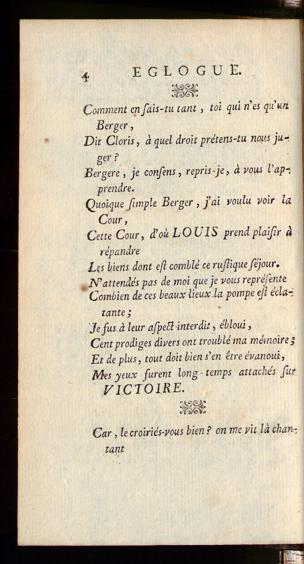 4 EGLOGUE.
Comment en sais-tu tant, toi qui n'es qu'un
Berger,
Dit Cloris, à quel droit prétens-tu nous ju-
ger?
Bergere, je consens, repris-je, à vous l'ap-
prendre.
Quoique simple Berger, j'ai voulu voir la
Cour,
Cette Cour, d'où LOUIS prend plaisir à
répandre
Les biens dont est comblé ce rustique séjour.
N'attendés pas de moi que je vous représente
Combien de ces beaux lieux la pompe est écla-
tante;
Je fus à leur aspect interdit, ébloui,
Cent prodiges divers ont troublé ma mémoire;
Et de plus, tout doit bien s'en être évanoui,
Mes yeux furent long-temps attachés sur
VICTOIRE.
Car, le croiriés-vous bien? on me vit là chan-
tant